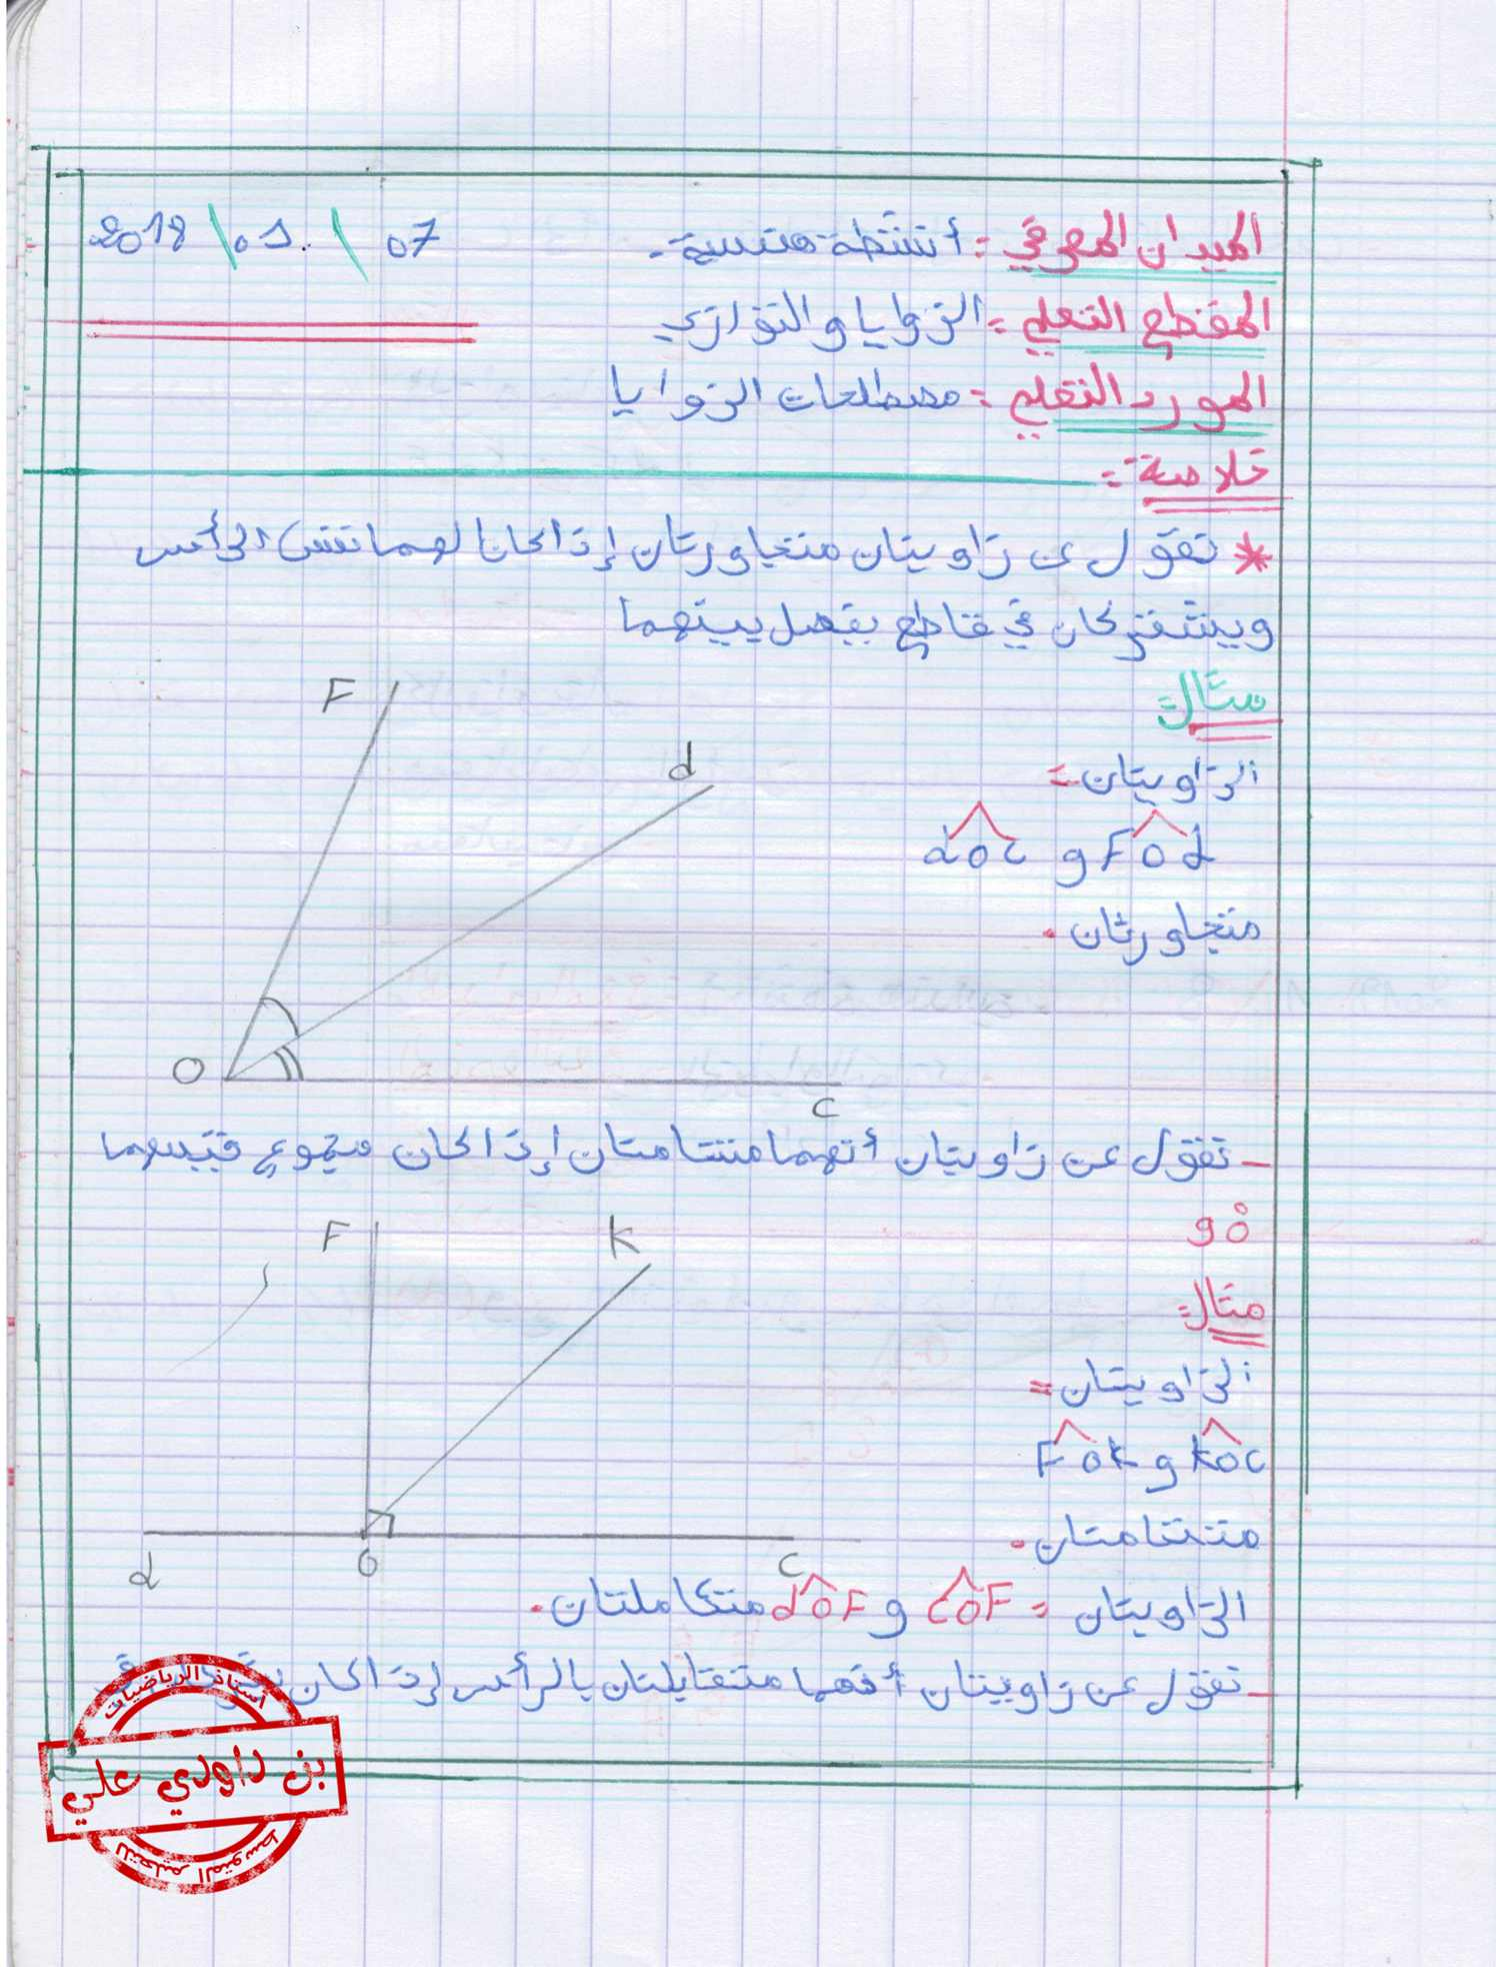 الميدان المعرفي : أنشطة هندسية.
07 / 01 / 2018
المقطع التعلمي : الزوايا والتوازي
المورد التعلمي : مصطلحات الزوايا
خلاصة :
* نقول عن زاويتان متجاورتان إذا كان لهما نفس الرأس
ويشتركان في قاطع يفصل بينهما
مثال:
الزاويتان :
FOd و dOC
متجاورتان.
F
d
O
C
- نقول عن زاويتان أنهما متتامتان إذا كان مجموع قيسهما
90°
مثال:
الزاويتان :
KOC و FOK
متتامتان.
F
K
d
O
C
الزاويتان : COF و dOF متكاملتان.
- نقول عن زاويتان أنهما متقابلتان بالرأس إذا كان
أستاذ الرياضيات
بن داودي علي
للتعليم المتوسط